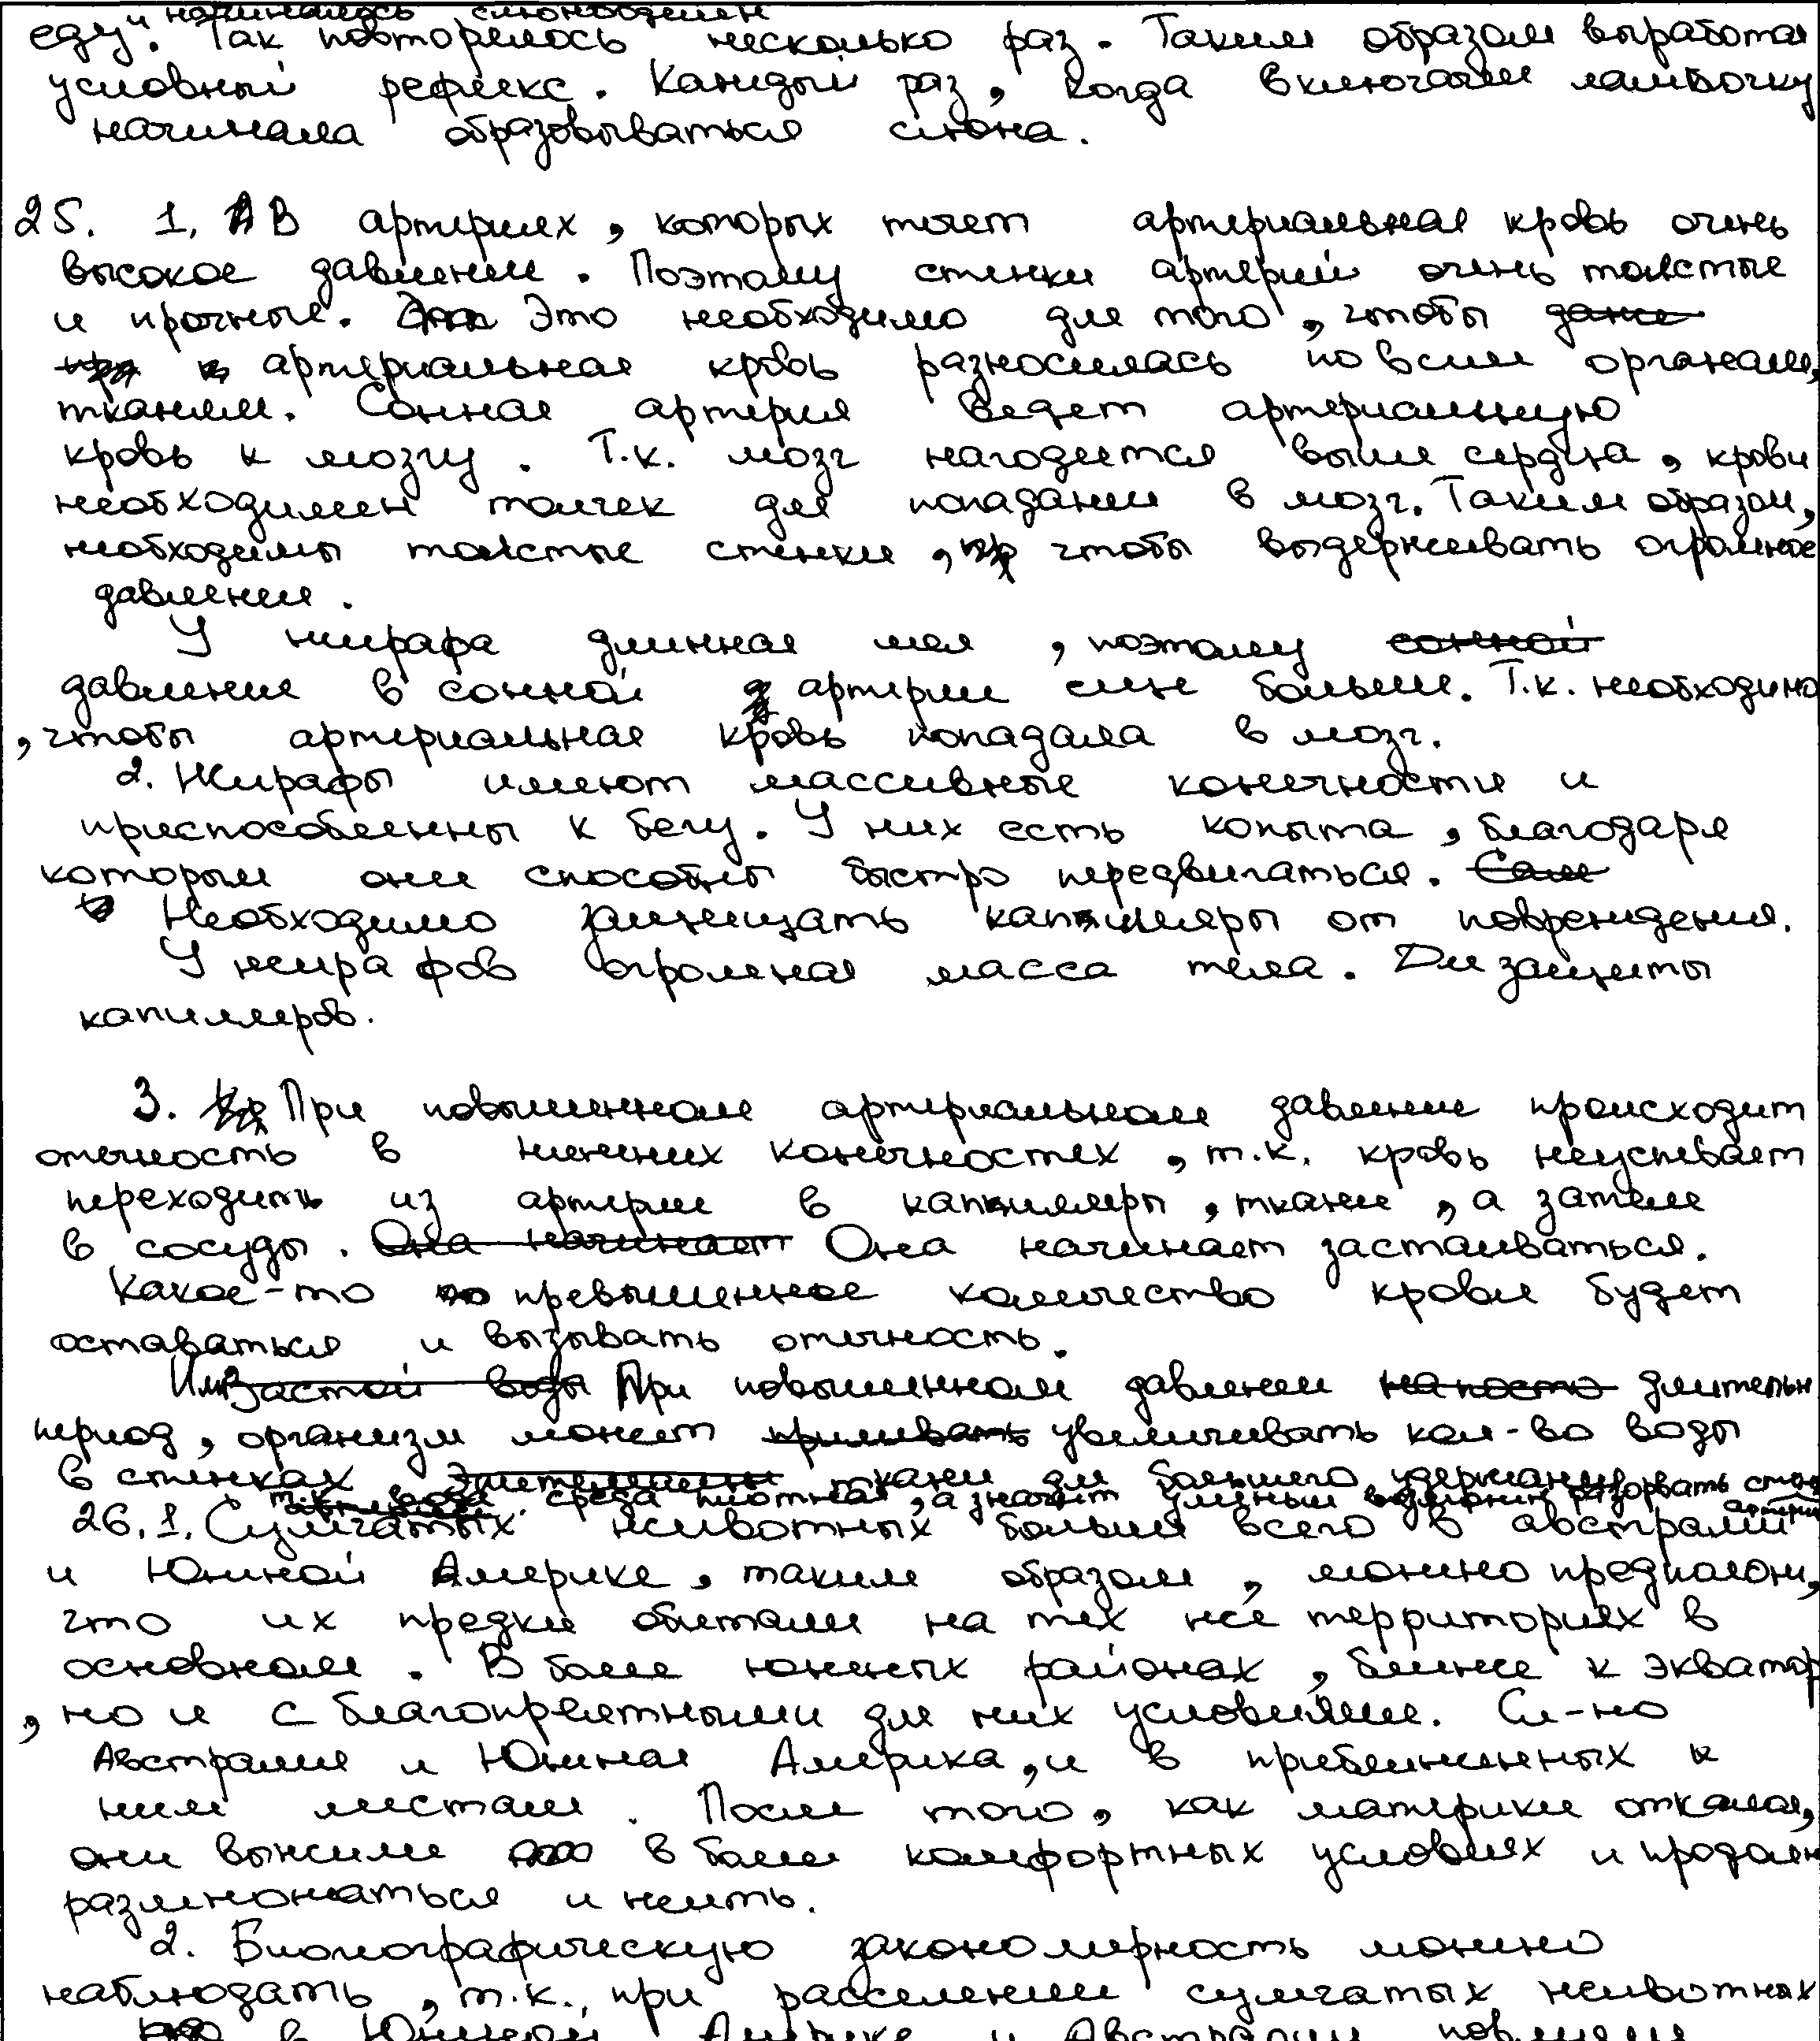 начиналось слюноотделен
еду". Так повторялось несколько раз. Таким образом выработал
условный рефлекс. Каждый раз, когда включали лампочку
начинала образовываться слюна.
25. 1. В артериях, которых течет артериальная кровь очень
высокое давление. Поэтому стенки артерий очень толстые
и прочные. Это необходимо для того, чтобы даже
артериальная кровь разносилась по всем органам,
тканям. Сонная артерия ведет артериальную
кровь к мозгу. Т.к. мозг находится выше сердца, крови
необходимен толчек для попадания в мозг. Таким образом,
необходимы толстые стенки, чтобы выдерживать огромное
давление.
У жирафа длинная шея, поэтому сонной
давление в сонной артерии еще больше. Т.к. необходимо
, чтобы артериальная кровь попадала в мозг.
2. Жирафы имеют массивные конечности и
приспособленны к бегу. У них есть копыта, благодаря
которым они способны быстро передвигаться. Сам
Необходимо защищать капилляры от повреждения.
У жирафов огромная масса тела. Для защиты
капилляров.
3. При повышенном артериальном давление происходит
отечность в нижних конечностях, т.к. кровь неуспевает
переходить из артерии в капилляры, ткани, а затем
в сосуды. Она начинает Она начинает застаиваться.
Какое-то превышенное количество крови будет
оставаться и вызывать отечность.
Застой воды При повышенном давлении длительн
период, организм может увеличивать кол-во воды
в стенках ткани для большего удержания
т.к. вода среда плотная, а значит разорвать
26. 1. Сумчатых животных больше всего в австралии
и Южной Америке, таким образом, можно предполож,
что их предки обитали на тех же территориях в
основном. В более южных районах, ближе к экватор
, но и с благоприятными для них условиями. Сл-но
Австралия и Южная Америка, и в приближенных к
ним местам. После того, как материки откалол,
они выжили в более комфортных условиях и продолж
размножаться и жить.
2. Биолографическую закономерность можно
наблюдать, т.к., при расселении сумчатых животных
в Южной Америке и Австралии